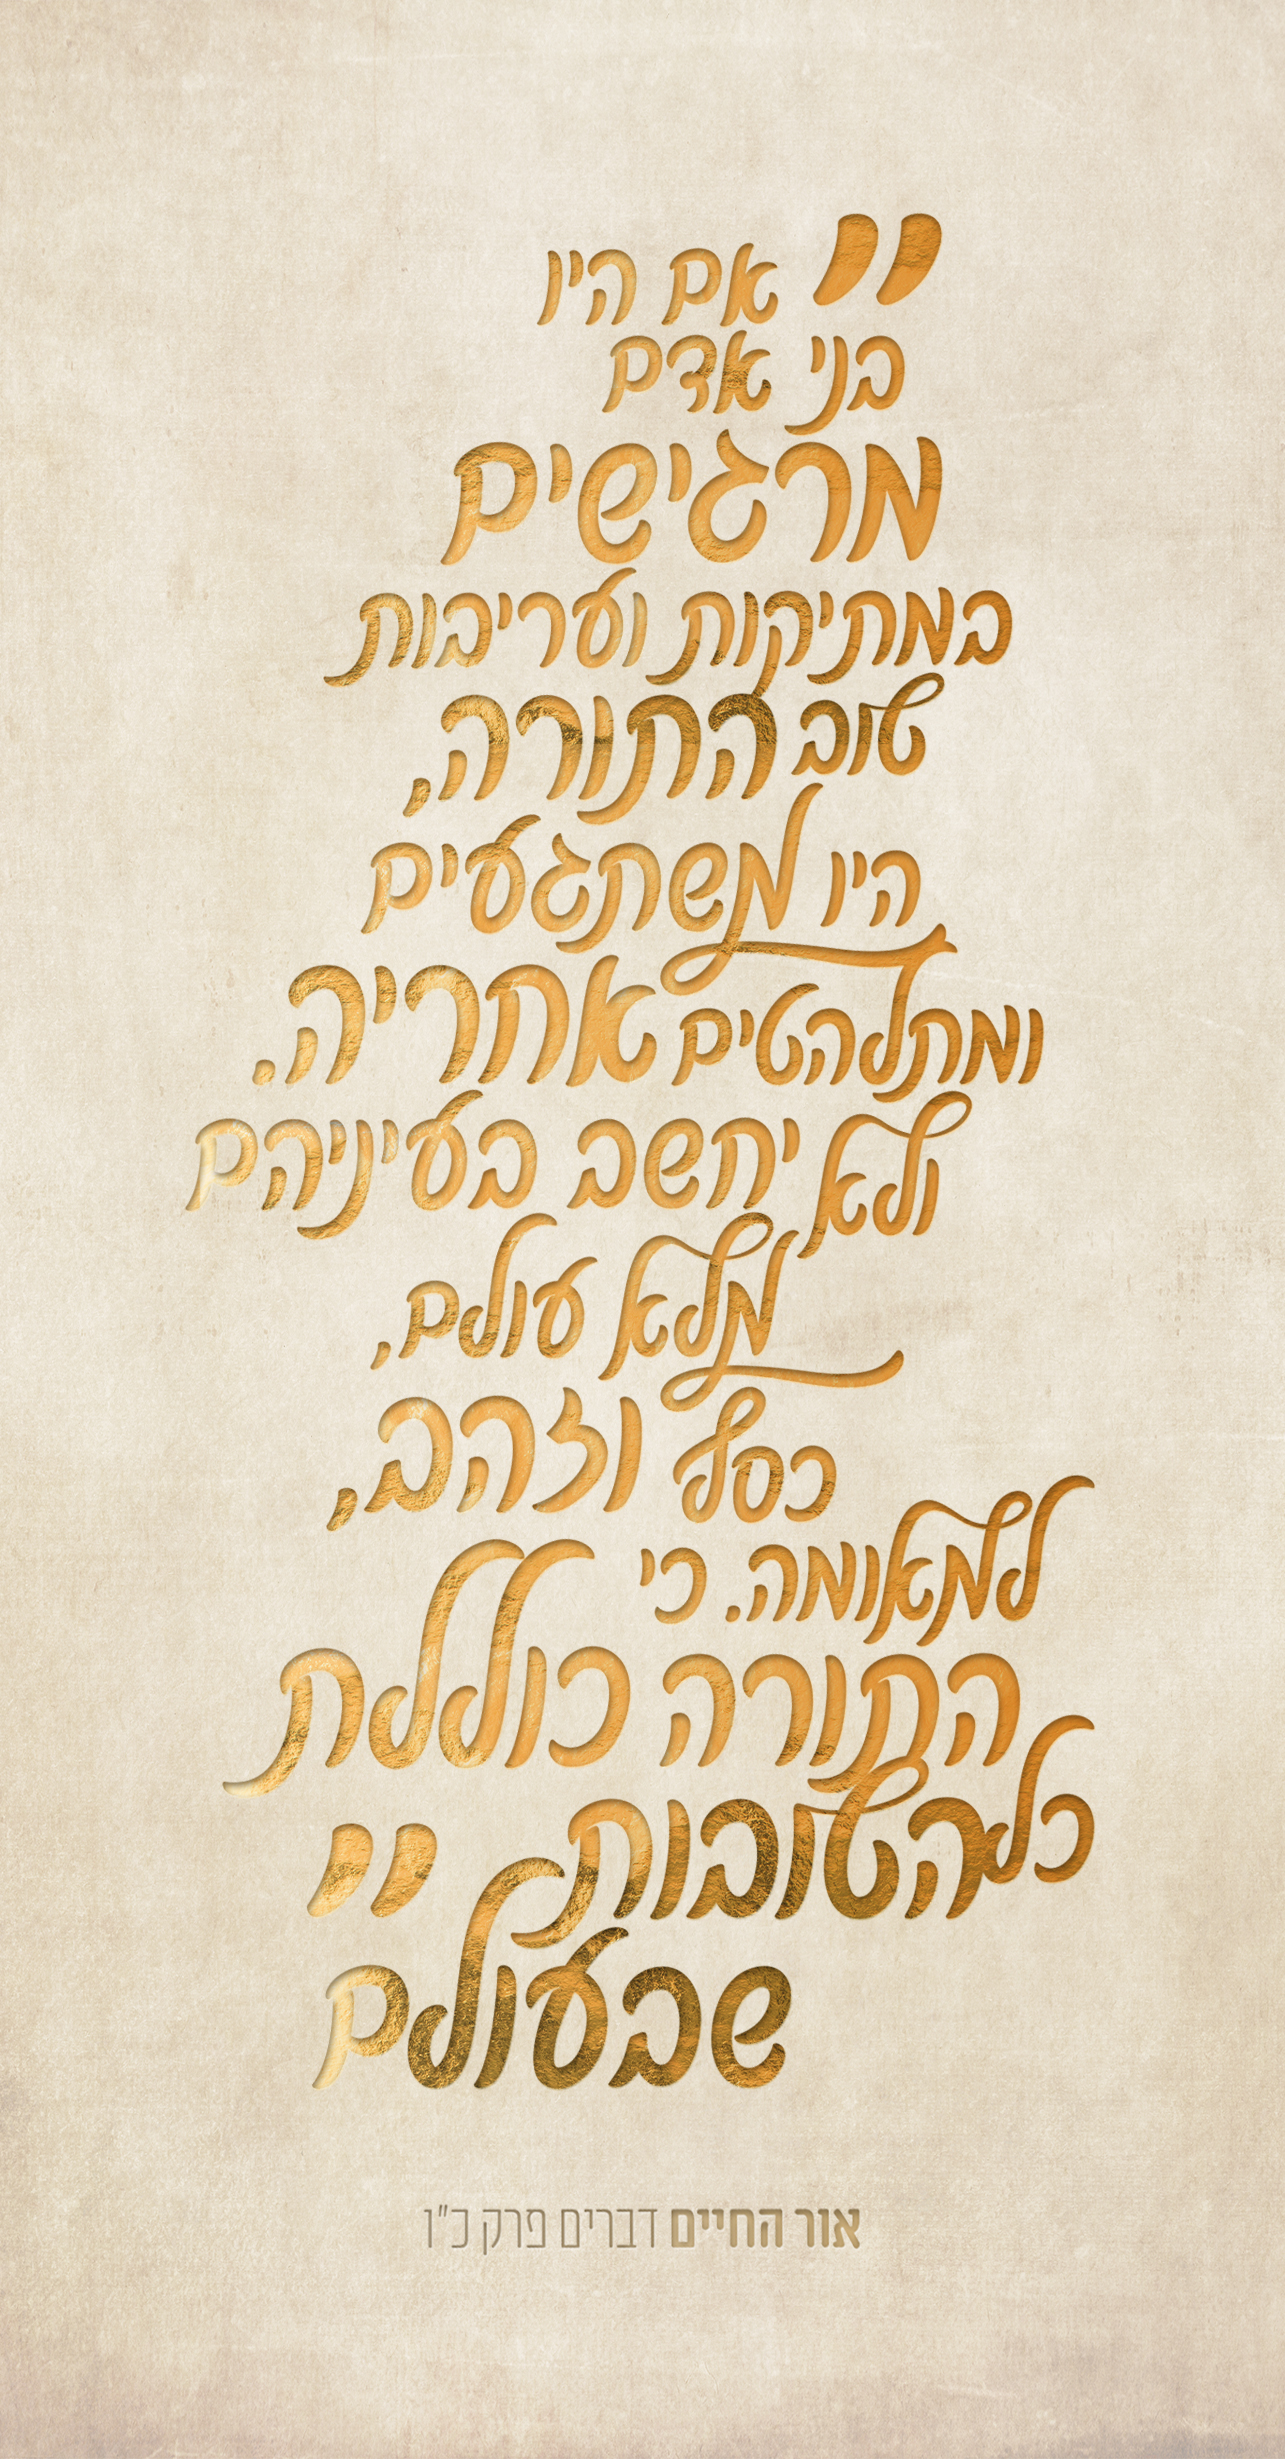 "אם היו
בני אדם
מרגישים
במתיקות ועריבות
טוב התורה,
היו משתגעים
ומתלהטים אחריה.
ולא יחשב בעיניהם
מלא עולם,
כסף וזהב,
למאומה. כי
התורה כוללת
כל הטובות"
שבעולם
אור החיים דברים פרק כ"ו